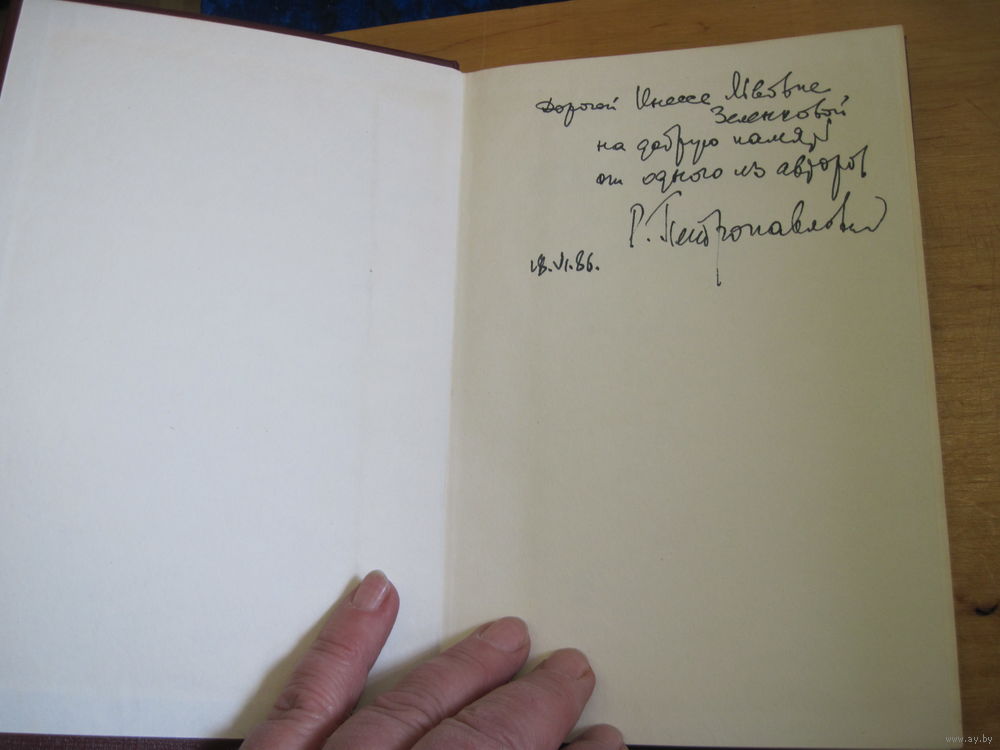 Дорогой Инессе Львовне
Зеленковой
на добрую память
от одного из авторов
Р. Петропавловский
18.VI.86.
www.ay.by